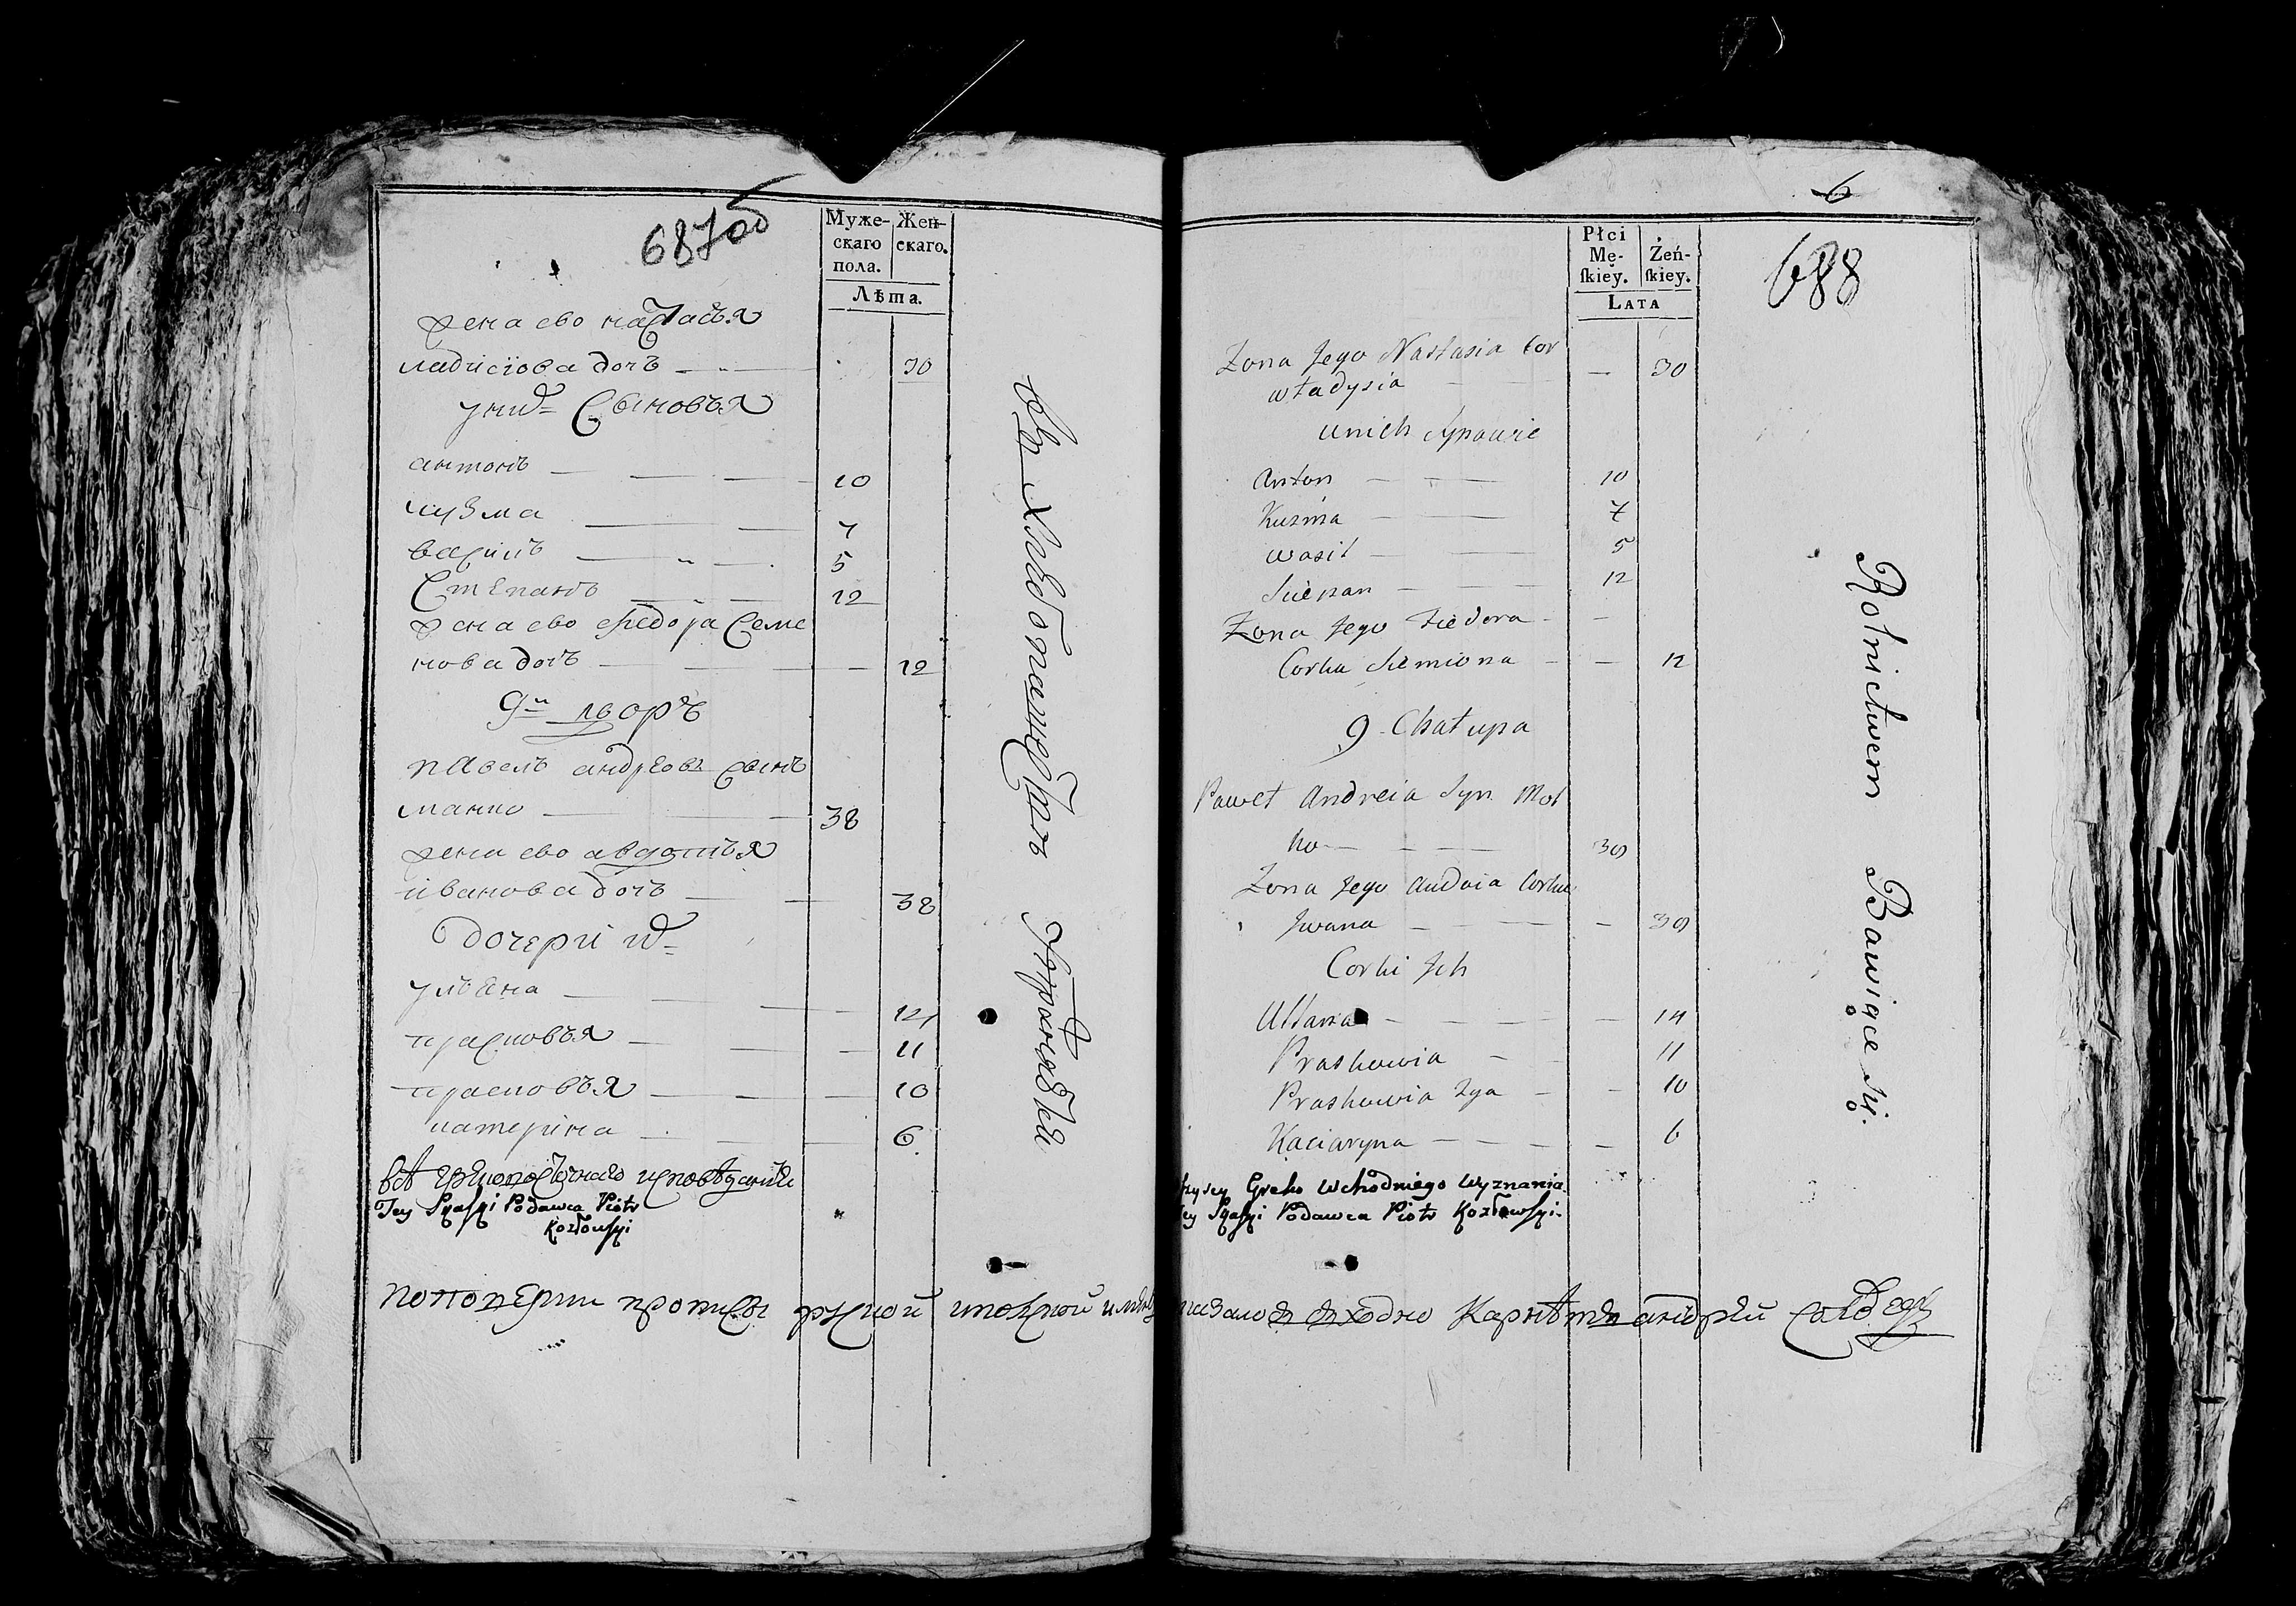 687об
Муже-
скаго
пола.
Жен-
скаго.
Лѣта.
жена ево настасья
ладисіова дочъ 30
у них сыновъя
антонъ 10
кузма 7
василь 5
Степанъ 12
жена ево федора Семе
нова дочъ 12
9й дворъ
павелъ андреевъ сынъ
манко 38
жена ево авдотъя
иванова дочъ 38
дочери их
улъяна 14
прасковъя 11
прасковъя 10
катерина 6
всѣ исповѣдания
Tey Skaski Podawca Piotr
Kozłowski
хлебопашествъ
6
688
Płci
Mę-
skiey.
Żeń-
skiey.
LATA
Zona Jego Nastasia Cor
władysia — 30
unich Synowie
Anton 10
Kuzma 7
wasil 5
Sciepan 12
Zona Jego Fiedora
Corka Siemiona — 12
9 Chałupa
Paweł Andreia Syn Mol
ko 38
Zona Jego Audoia Corka
Jwana — 38
Corki Jch
Ullana — 14
Praskowia 11
Praskowia 2ga — 10
Kaciaryna — 6
Greko Wchodniego Wyznania
Skaski Podawca Piotr Kozłowski
Rolnictwem Bawiące się.
русской
сходно андрей